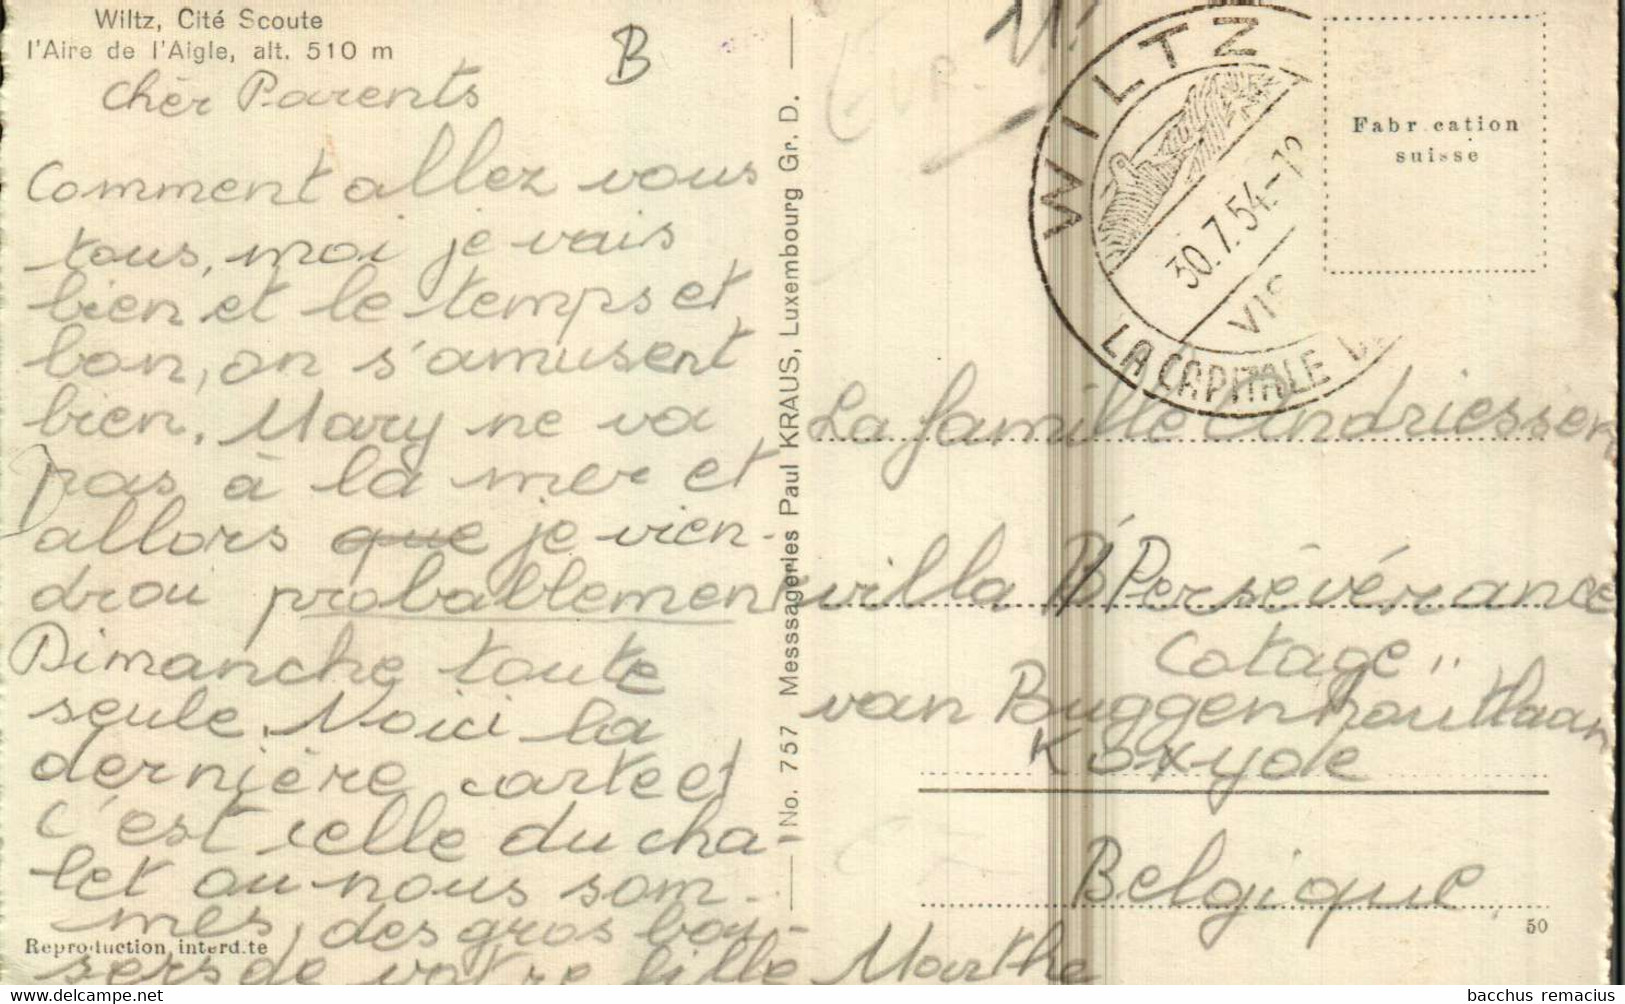 Wiltz, Cité Scoute
l'Aire de l'Aigle, alt. 510 m
B
chèr Parents
Comment allez vous
tous, moi je vais
bien et le temps et
bon, on s'amusent
bien. Mary ne va
pas à la mer et
allors que je vien-
drai probablement
Dimanche toute
seule. Voici la
dernière carte et
c'est celle du cha-
let ou nous som-
mes, des gros bai-
sers de votre fille Marthe
Reproduction interdite
No. 757 Messsageries Paul KRAUS, Luxembourg Gr. D.
WILTZ
30.7.54
VIS
LA CAPITALE
Fabrication
suisse
La famille Andriessen
villa Persévérance
Cotage
van Buggenhoutlaan
Koxyde
Belgique
50
bacchus remacius